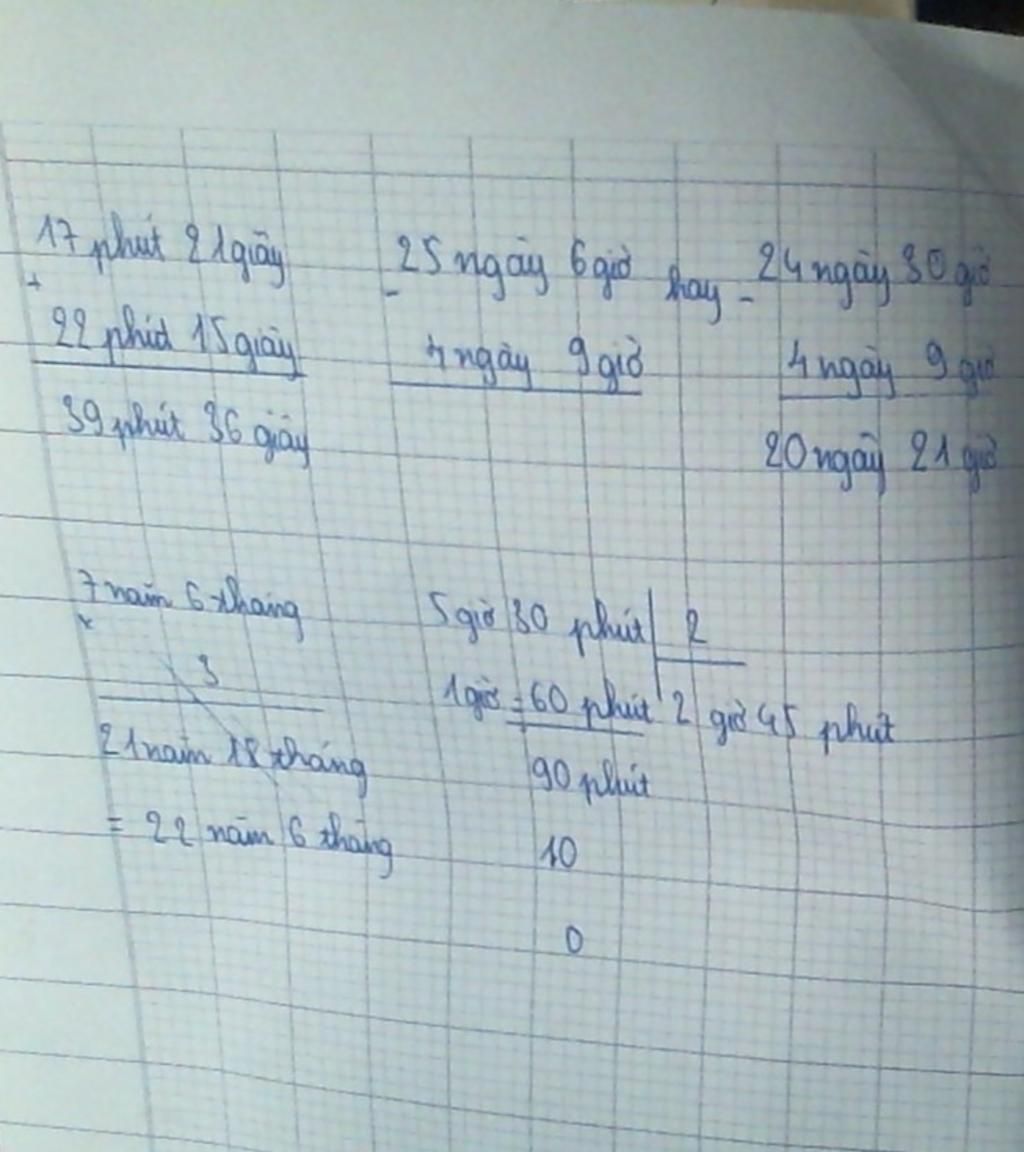 17 phút 21 giây
+
22 phút 15 giây
39 phút 36 giây
25 ngày 6 giờ
-
4 ngày 9 giờ
hay
24 ngày 30 giờ
-
4 ngày 9 giờ
20 ngày 21 giờ
7 năm 6 tháng
x
3
21 năm 18 tháng
= 22 năm 6 tháng
5 giờ 30 phút 2
1 giờ = 60 phút 2 giờ 45 phút
90 phút
10
0